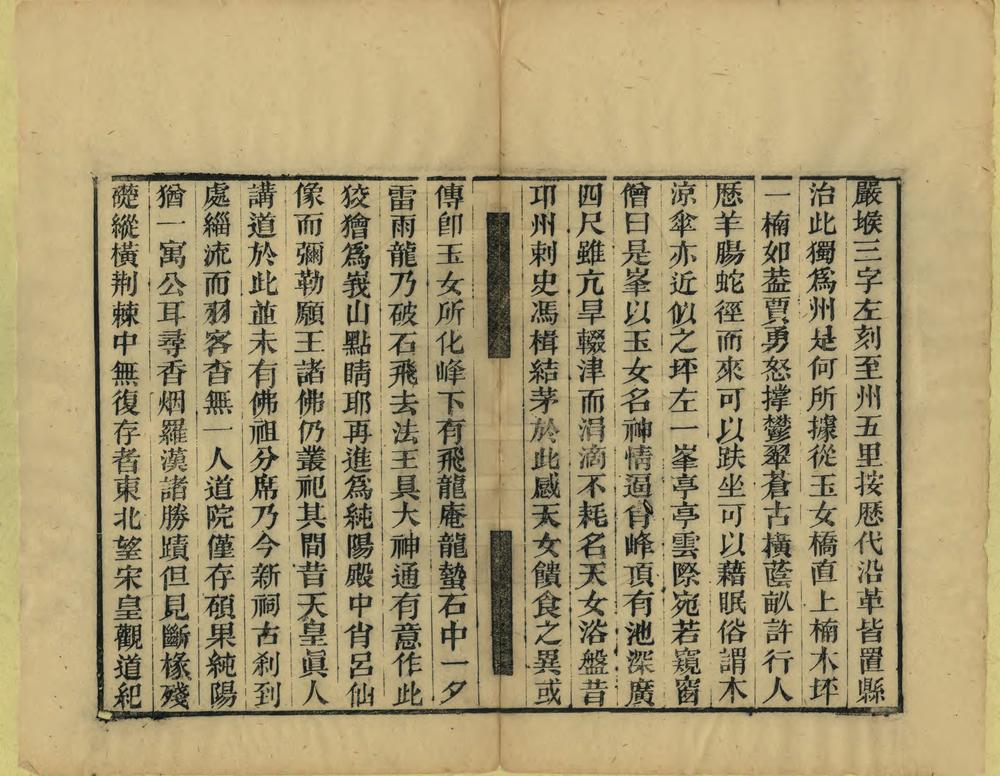 嚴堠三字左刻至州五里按歷代沿革皆置縣
治此獨爲州是何所據從玉女橋直上楠木坪
一楠如葢賈勇怒撑鬱翠蒼古橫蔭畝許行人
歷羊腸蛇徑而來可以趺坐可以藉眠俗謂木
涼傘亦近似之坪左一峯亭亭雲際宛若窺窗
僧曰是峯以玉女名神情逼肖峰頂有池深廣
四尺雖亢旱輟津而涓滴不耗名天女浴盤昔
邛州刺史馮楫結茅於此感天女饋食之異或
傳卽玉女所化峰下有飛龍庵龍蟄石中一夕
雷雨龍乃破石飛去法王具大神通有意作此
狡獪爲峩山點睛耶再進爲純陽殿中肖呂仙
像而彌勒願王諸佛仍叢祀其間昔天皇眞人
講道於此並未有佛祖分席乃今新祠古刹到
處緇流而羽客杳無一人道院僅存碩果純陽
猶一寓公耳尋香烟羅漢諸勝蹟但見斷椽殘
礎縱橫荆棘中無復存者東北望宋皇觀道紀